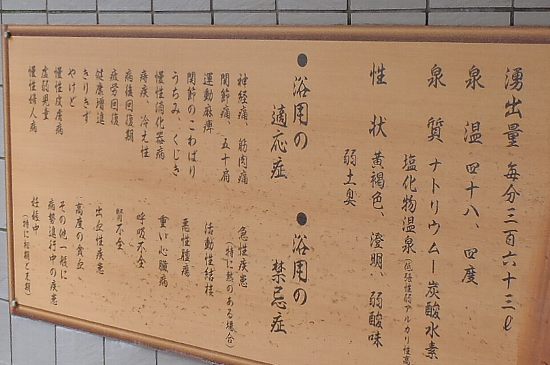 湧出量 毎分三百六十三ℓ
泉温 四十八、四度
泉質 ナトリウムー炭酸水素
塩化物温泉(低張性弱アルカリ性高
性状 黄褐色、澄明、弱酸味
弱土臭
●浴用の適応症
神経痛、筋肉痛
関節痛、五十肩
運動麻痺
関節のこわばり
うちみ、くじき
慢性消化器病
痔疾、冷え性
病後回復期
疲労回復
健康増進
きりきず
やけど
慢性皮膚病
虚弱児童
慢性婦人病
●浴用の禁忌症
急性疾患
(特に熱のある場合)
活動性結核
悪性腫瘍
重い心臓病
呼吸不全
腎不全
出血性疾患
高度の貧血
その他一般に
病勢進行中の疾患
妊娠中
(特に初期と末期)